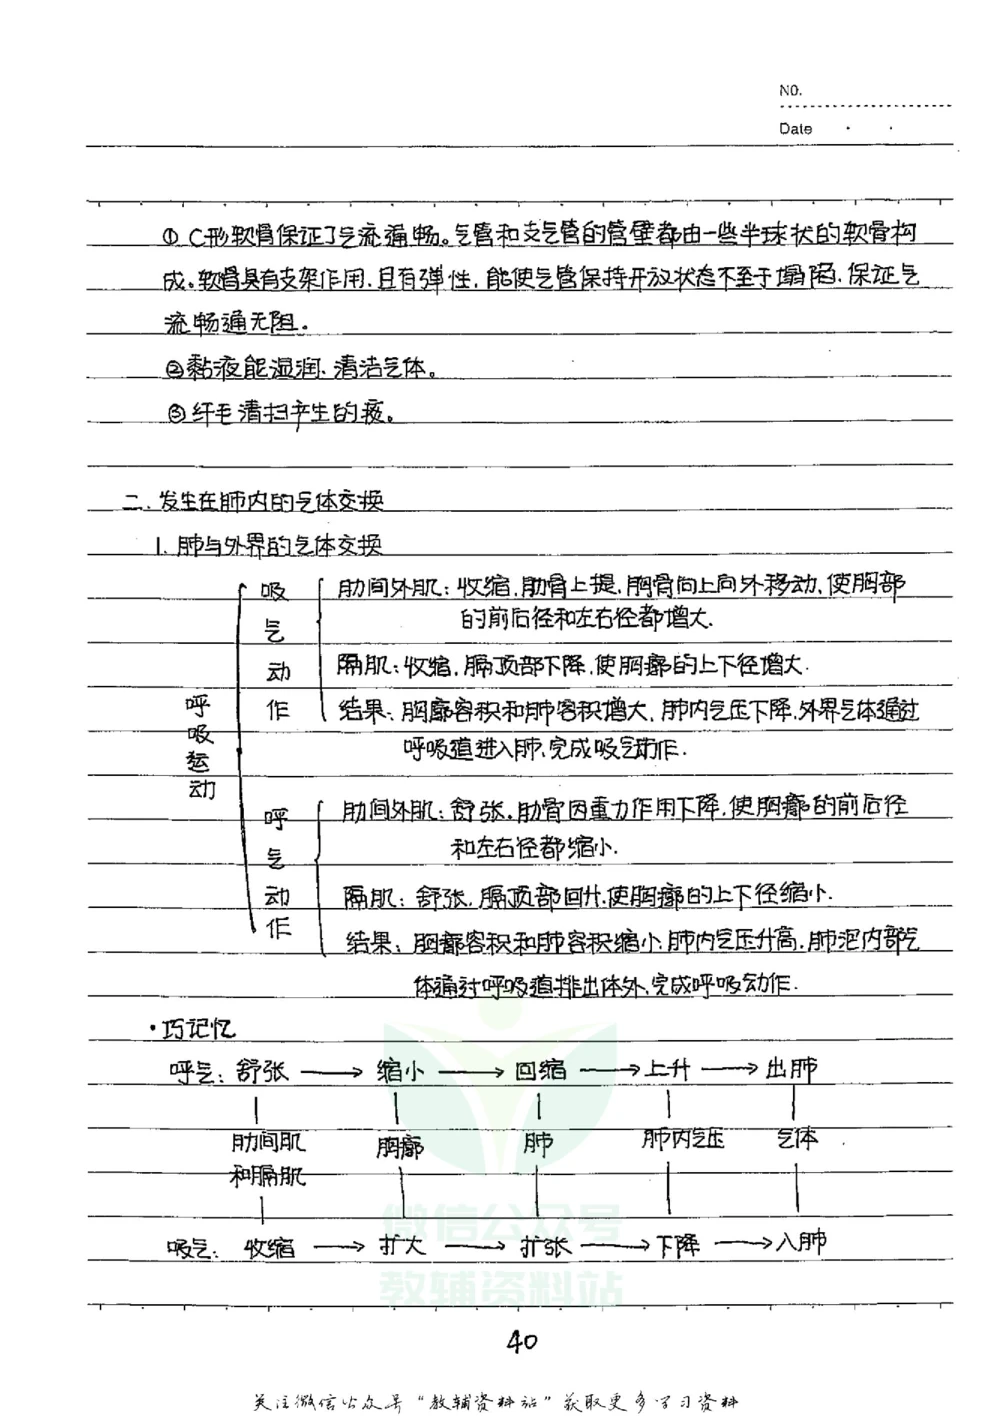 NO.
Date
① C形软骨保证了气流通畅。气管和支气管的管壁都由一些半球状的软骨构
成。软骨具有支架作用,且有弹性,能使气管保持开放状态不至于塌陷,保证气
流畅通无阻。
②黏液能湿润、清洁气体。
③纤毛清扫产生的痰。
二、发生在肺内的气体交换
1. 肺与外界的气体交换
呼吸运动
吸气动作
肋间外肌:收缩,肋骨上提,胸骨向上向外移动,使胸部
的前后径和左右径都增大.
膈肌:收缩,膈顶部下降,使胸廓的上下径增大.
结果:胸廓容积和肺容积增大,肺内气压下降,外界气体通过
呼吸道进入肺,完成吸气动作.
呼气动作
肋间外肌:舒张,肋骨因重力作用下降,使胸廓的前后径
和左右径都缩小.
膈肌:舒张,膈顶部回升,使胸廓的上下径缩小.
结果:胸廓容积和肺容积缩小,肺内气压升高,肺泡内部气
体通过呼吸道排出体外,完成呼吸动作.
·巧记忆
呼气:舒张 → 缩小 → 回缩 → 上升 → 出肺
肋间肌 胸廓 肺 肺内气压 气体
和膈肌
吸气:收缩 → 扩大 → 扩张 → 下降 → 入肺
微信公众号
教辅资料站
40
关注微信公众号“教辅资料站”获取更多学习资料